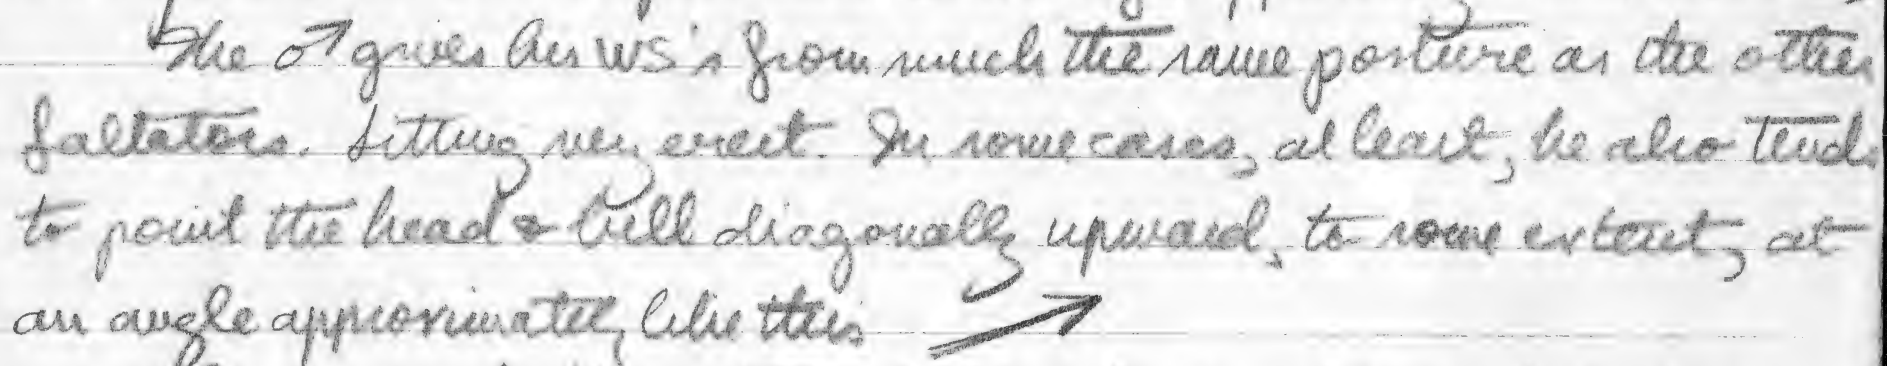 The ♂ gives his WS's from much the same posture as the other
Saltators. Sitting very erect. In some cases, at least, he also tends
to point the head & bill diagonally upward, to some extent, at
an angle approximately like this ↗